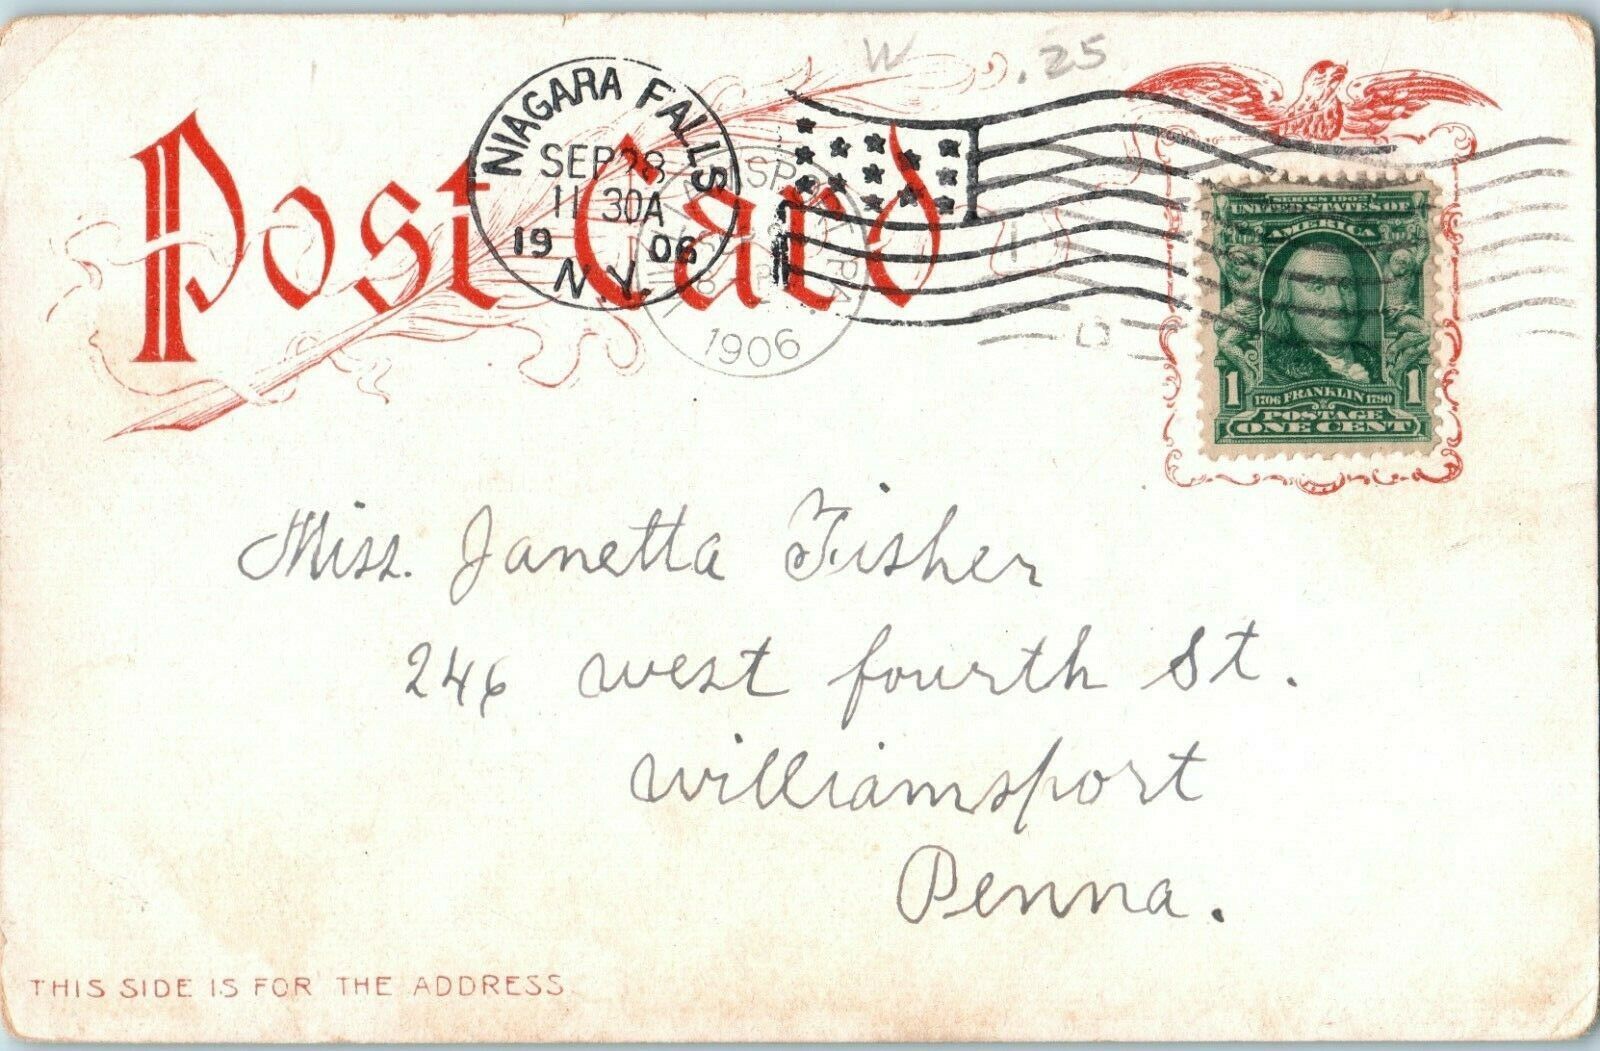 W .25
Post Card
NIAGARA FALLS
SEP 28
11 30A
19 06
N.Y.
1906
SERIES 1902
UNITED STATES OF
AMERICA
1 1706 FRANKLIN 1790 1
POSTAGE
ONE CENT
Miss. Janetta Fisher
246 west fourth St.
Williamsport
Penna.
THIS SIDE IS FOR THE ADDRESS.